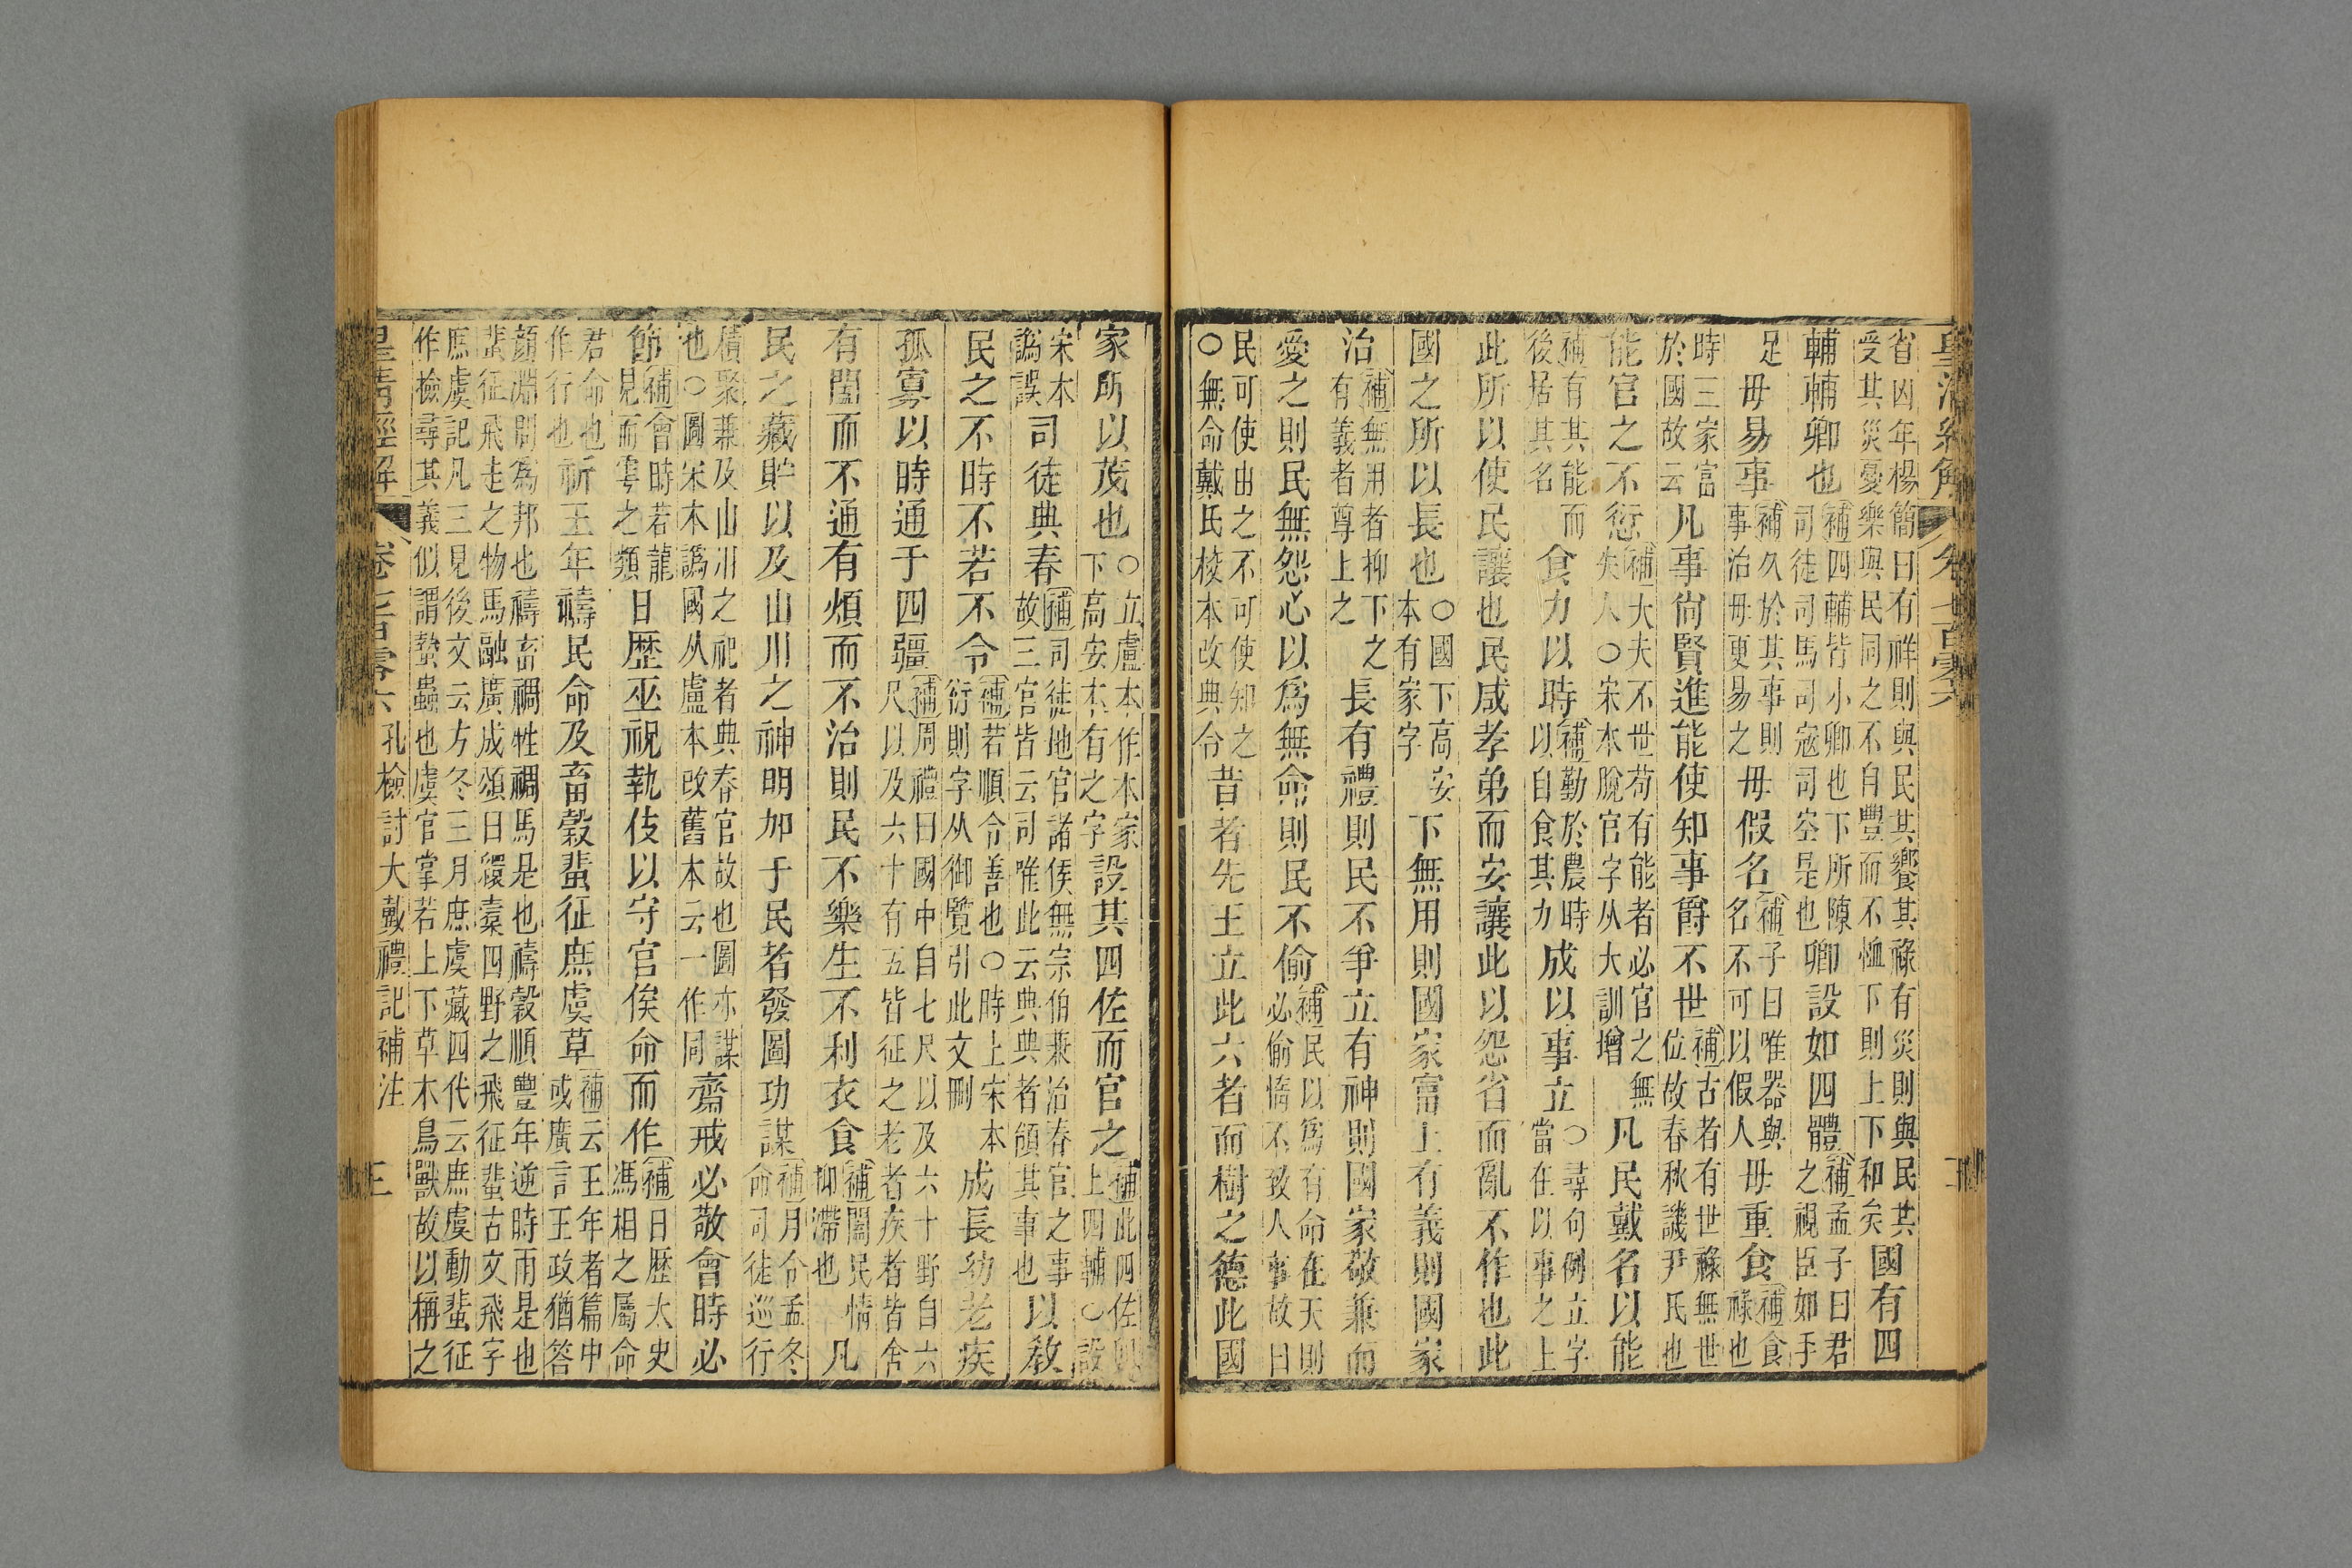 皇清經解 卷七百零六 三
省凶年楊簡曰有祥則與民其饗其祿有災則與民其受其災憂樂與民同之不自豐而不恤下則上下和矣國有四
輔輔卿也補四輔皆小卿也下所陳司徒司馬司寇司空是也卿設如四體補孟子曰君之視臣如手
足毋易事補久於其事則事治毋更易之毋假名補子曰唯器與名不可以假人毋重食補食祿也
時三家富於國故云凡事尚賢進能使知事爵不世補古者有世祿無世位故春秋譏尹氏也
能官之不愆補大夫不世苟有能者必官之無失人○宋本脫官字从大訓增凡民戴名以能
補有其能而後居其名食力以時補勤於農時以自食其力成以事立○尋句例立字當在以事之上
此所以使民讓也民咸孝弟而安讓此以怨省而亂不作也此
國之所以長也○國下高安本有家字下無用則國家富上有義則國家
治補無用者抑下之有義者尊上之長有禮則民不爭立有神則國家敬兼而
愛之則民無怨心以爲無命則民不偷補民以爲有命在天則必偷惰不致人事故曰
民可使由之不可使知之○無命戴氏校本改典令昔者先王立此六者而樹之德此國
家所以茂也○立盧本作本家下高安本有之字設其四佐而官之補此四佐與上四輔○設
宋本譌誤司徒典春補司徒地官諸侯無宗伯兼治春官之事故三官皆云司唯此云典典者領其事也以教
民之不時不若不令補若順令善也○時上宋本衍則字从御覽引此文刪成長幼老疾
孤寡以時通于四疆補周禮曰國中自七尺以及六十野自六尺以及六十有五皆征之老者疾者皆舍
有闔而不通有煩而不治則民不樂生不利衣食補闔民情抑滯也凡
民之藏貯以及山川之神明加于民者發圖功謀補月令孟冬命司徒巡行
積聚兼及山川之祀者典春官故也圖亦謀也○圖宋本譌國从盧本改舊本云一作同齋戒必敬會時必
節補會時若龍見而雩之類日歷巫祝執伎以守官俟命而作補日歷太史馮相之屬命
君命也作行也祈王年禱民命及畜穀蜚征庶虞草補云王年者篇中或廣言王政猶答
顏淵問爲邦也禱畜禂牲禂馬是也禱穀順豐年逆時雨是也蜚征飛走之物馬融廣成頌曰橐四野之飛征蜚古文飛字
庶虞記凡三見後文云方冬三月庶虞藏四代云庶虞動蜚征作檢尋其義似謂蟄蟲也虞官掌若上下草木鳥獸故以稱之
皇清經解 卷七百零六 孔檢討大戴禮記補注 三